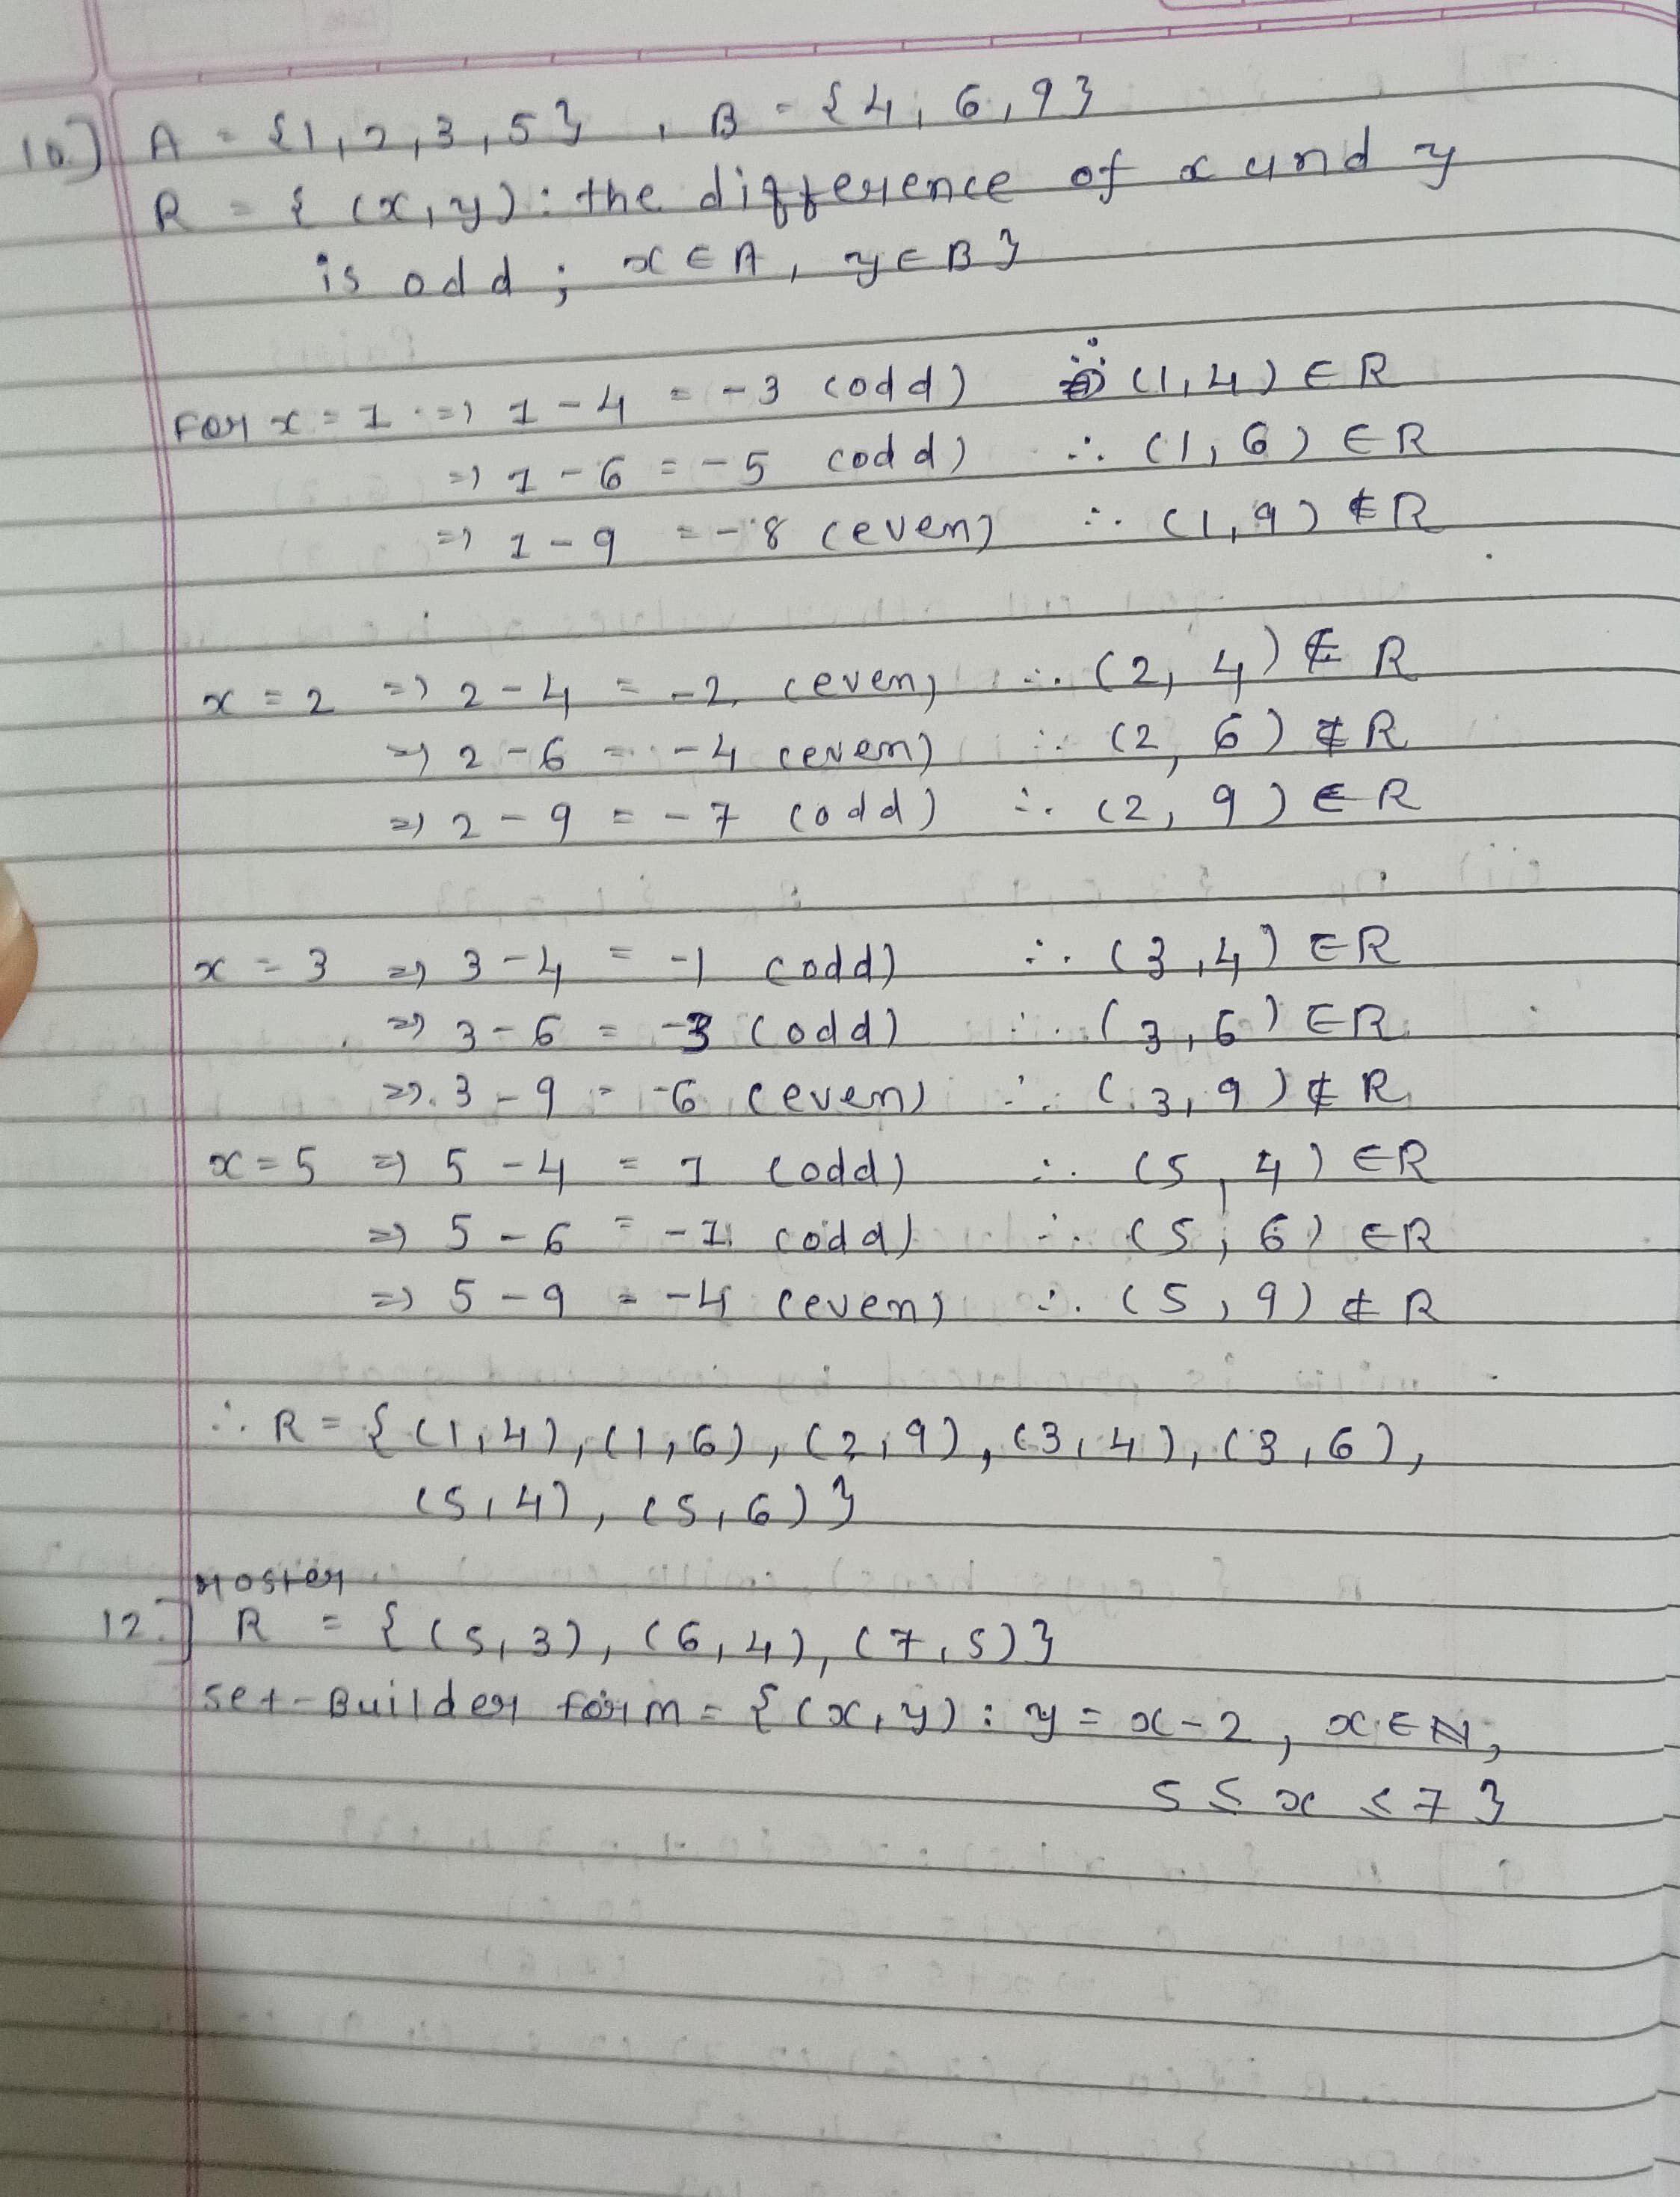 10.) A = {1,2,3,5} , B = {4, 6, 9}
R = { (x,y): the difference of x and y
is odd ; x ∈ A, y ∈ B }
For x = 1 => 1 - 4 = -3 (odd) ∴ (1,4) ∈ R
=> 1 - 6 = -5 (odd) ∴ (1,6) ∈ R
=> 1 - 9 = -8 (even) ∴ (1,9) ∉ R
x = 2 => 2 - 4 = -2 (even) ∴ (2, 4) ∉ R
=> 2 - 6 = -4 (even) ∴ (2, 6) ∉ R
=> 2 - 9 = -7 (odd) ∴ (2, 9) ∈ R
x = 3 => 3 - 4 = -1 (odd) ∴ (3,4) ∈ R
=> 3 - 6 = -3 (odd) ∴ (3,6) ∈ R
=> 3 - 9 = -6 (even) ∴ (3,9) ∉ R
x = 5 => 5 - 4 = 1 (odd) ∴ (5, 4) ∈ R
=> 5 - 6 = -1 (odd) ∴ (5, 6) ∈ R
=> 5 - 9 = -4 (even) ∴ (5, 9) ∉ R
∴ R = { (1,4), (1,6), (2,9), (3,4), (3,6),
(5,4), (5,6) }
Roster
12.] R = { (5,3), (6,4), (7,5) }
Set-Builder form = { (x,y) : y = x - 2, x ∈ N,
5 ≤ x ≤ 7 }